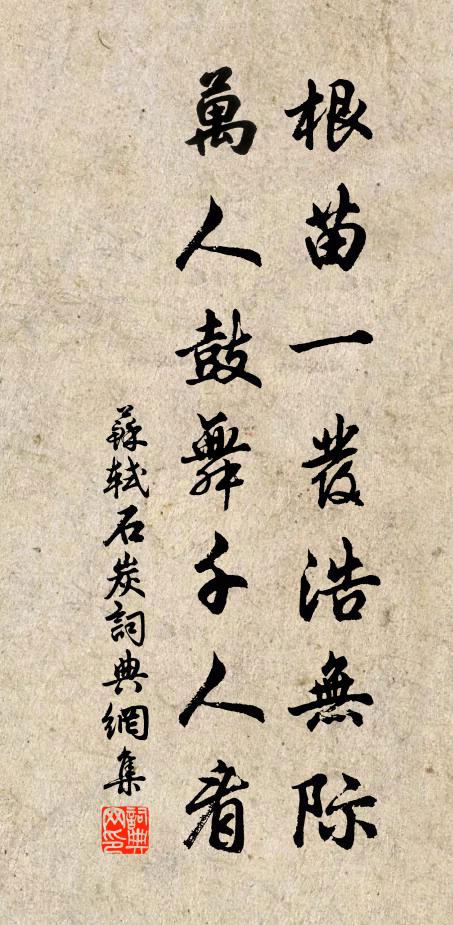 根苗一發浩無际
萬人鼓舞千人看
蘇轼石炭詞典網集
詞典網印